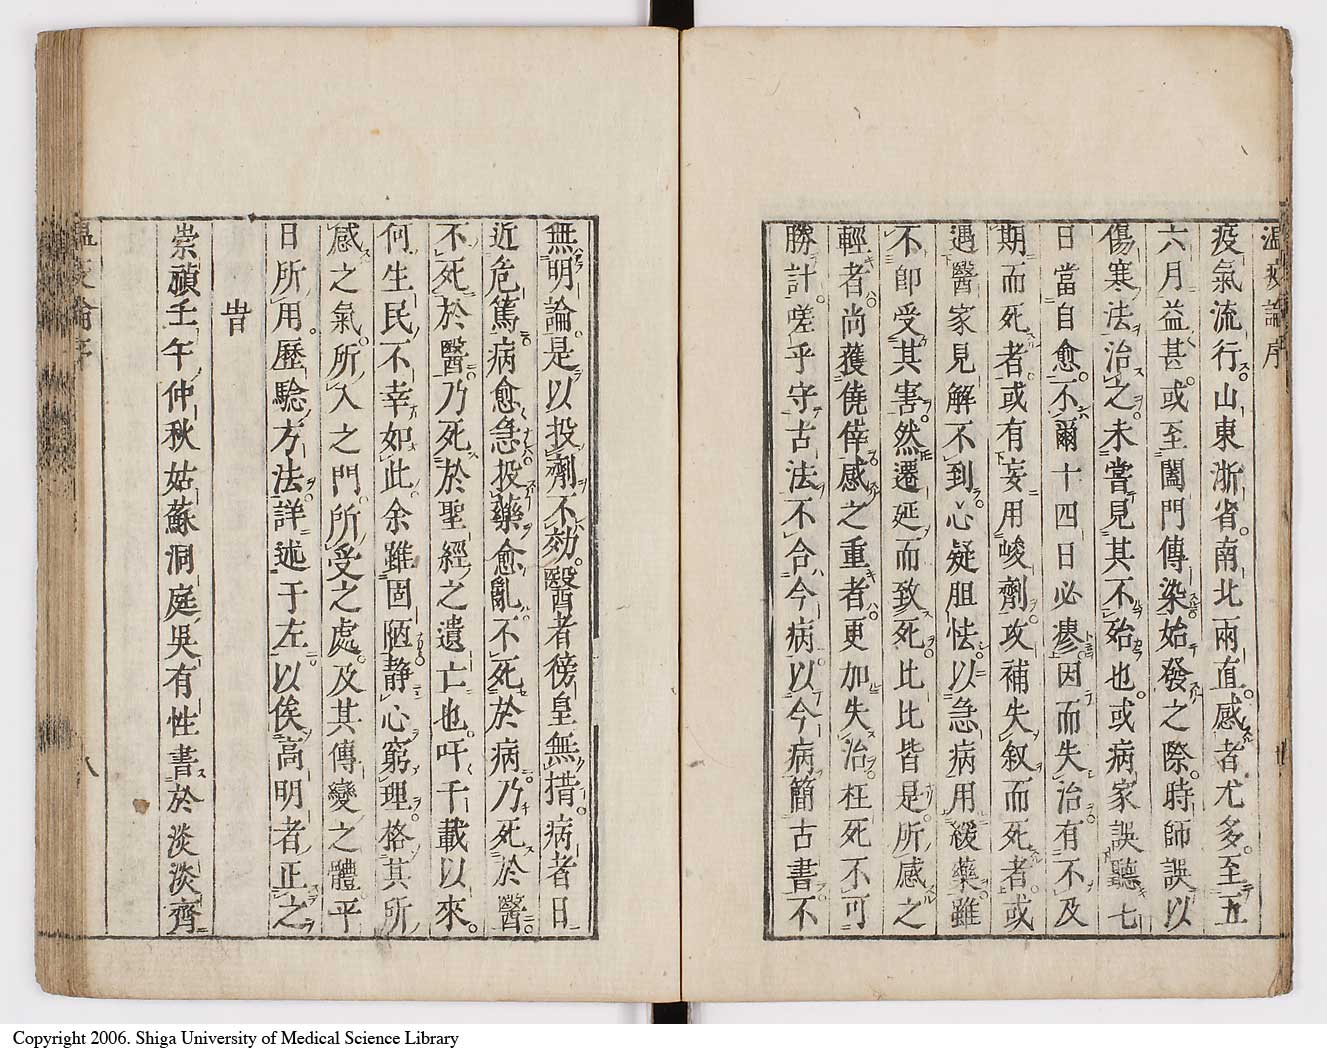 温疫論序
疫氣流行山東浙省。南北兩直。感者尤多。至五
六月益甚。或至闔門傳染。始發之際。時師誤以
傷寒法治之。未嘗見其不殆也。或病家誤聽七
日當自愈。不爾十四日必瘳。因而失治。有不及
期而死者。或有妄用峻劑。攻補失叙而死者。或
遇醫家見解不到。心疑胆怯。以急病用緩藥。雖
不即受其害。然遷延而致死。比比皆是。所感之
輕者。尚獲僥倖。感之重者。更加失治。枉死不可
勝計。嗟乎守古法不合今病。以今病簡古書。不
無明論。是以投劑不効。醫者傍皇無措。病者日
近危篤。病愈急。投藥愈亂。不死於病。乃死於醫。
不死於醫。乃死於聖經之遺亡也。吁千載以來。
何生民不幸如此。余雖固陋。静心窮理。格其所
感之氣。所入之門。所受之處。及其傳變之體。平
日所用。歷驗方法。詳述于左。以俟高明者正之
旹
崇禎壬午仲秋姑蘇洞庭吳有性書於淡淡齊
温疫論序 八
Copyright 2006. Shiga University of Medical Science Library